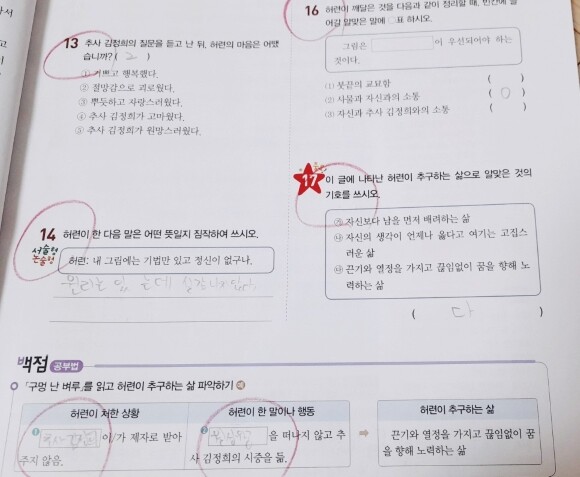 13 추사 김정희의 질문을 듣고 난 뒤, 허련의 마음은 어땠
습니까? ( 2 )
① 기쁘고 행복했다.
② 절망감으로 괴로웠다.
③ 뿌듯하고 자랑스러웠다.
④ 추사 김정희가 고마웠다.
⑤ 추사 김정희가 원망스러웠다.
14 허련이 한 다음 말은 어떤 뜻일지 짐작하여 쓰시오.
서술형
논술형
허련: 내 그림에는 기법만 있고 정신이 없구나.
16 허련이 깨달은 것을 다음과 같이 정리할 때, 빈칸에 들
어갈 알맞은 말에 ○표 하시오.
그림은 이 우선되어야 하는
것이다.
(1) 붓끝의 교묘함 ( )
(2) 사물과 자신과의 소통 ( ○ )
(3) 자신과 추사 김정희와의 소통 ( )
17 이 글에 나타난 허련이 추구하는 삶으로 알맞은 것의
기호를 쓰시오.
㉮ 자신보다 남을 먼저 배려하는 삶
㉯ 자신의 생각이 언제나 옳다고 여기는 고집스
러운 삶
㉰ 끈기와 열정을 가지고 끊임없이 꿈을 향해 노
력하는 삶
( 다 )
백점 공부법
「구멍 난 벼루」를 읽고 허련이 추구하는 삶 파악하기
허련이 처한 상황
❶ 추사 김정희 이/가 제자로 받아
주지 않음.
허련이 한 말이나 행동
❷ 을 떠나지 않고 추
사 김정희의 시중을 듦.
허련이 추구하는 삶
끈기와 열정을 가지고 끊임없이 꿈
을 향해 노력하는 삶